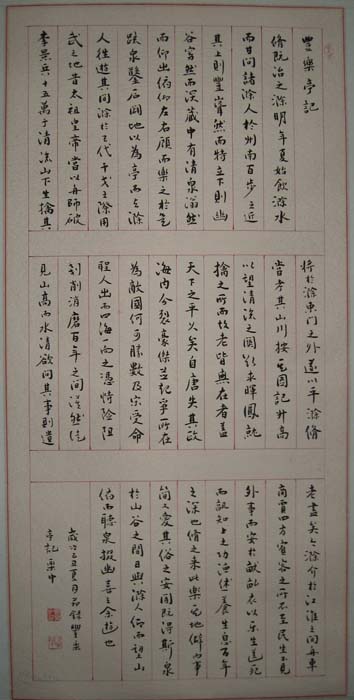 豐樂亭記
脩既治之滁明年夏始飲滁水
而甘問諸滁人於州南百步之近
其上則豐聳然而特立下則幽
谷窈然而深藏中有清泉滃然
而仰出俯仰左右顧而樂之於是
疏泉鑿石闢地以為亭而與滁
人往遊其間滁於五代干戈之際用
武之地昔太祖皇帝嘗以舟師破
李景兵十五萬于清流山下生擒其
將於滁東門之外遂以平滁脩
嘗考其山川按其圖記升高
以望清流之關欲求暉鳳就
擒之所而故老皆無在者蓋
天下之平以矣自唐失其政
海內分裂豪傑並起爭所在
為敵國何可勝數及宋受命
聖人出而四海一向之憑恃險阻
剗削消磨百年之間漠然徒
見山高而水清欲問其事則遺
老盡矣今滁介於江淮之間舟車
商賈四方賓客之所不至民生不見
外事而安於畎畝衣以樂生送死
而孰知上之功德休養生息百年
之深也脩之來此樂其地僻而事
簡又愛其俗之安閒既得斯泉
於山谷之間日與滁人仰而望山
俯而聽泉掇幽喜之余遊也
歲次乙丑夏月節錄豐樂
亭記